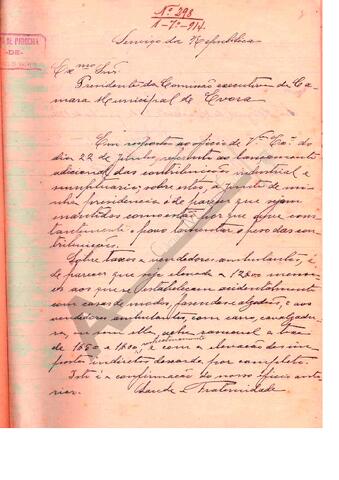 Nº 298
1-7º-914.
Serviço da Republica
DE PAROCHIA
-DE-
Exmo Snr.
Presidente da Commissão executiva da Ca-
mara Municipal de Evora
Em resposta ao officio de V. Exª do
dia 22 de Junho, referente ao lançamento
addicional das contribuições industrial e
sumptuaria, sobre estas, a Junta de mi-
nha presidencia é de parecer que sejam
mantidos como estão, por que ouve cons-
tantemente o povo lamentar o peso das con-
tribuições.
Sobre taxas a vendedores ambulantes, é
de parecer que seja elevada a 12$00 mensaes
aos que se estabelecem accidentalmente
com casas de modas, fazendas e algodões, e aos
vendedores ambulantes, com carro, cavalgadura,
ou sem ella, acha rasoavel a taxa
de 1$50 e 1$00, respectivamente, e com a elevação dos im-
postos indirectos discorda por completo.
Isto é a confirmação do nosso officio ante-
rior.
Saude e Fraternidade